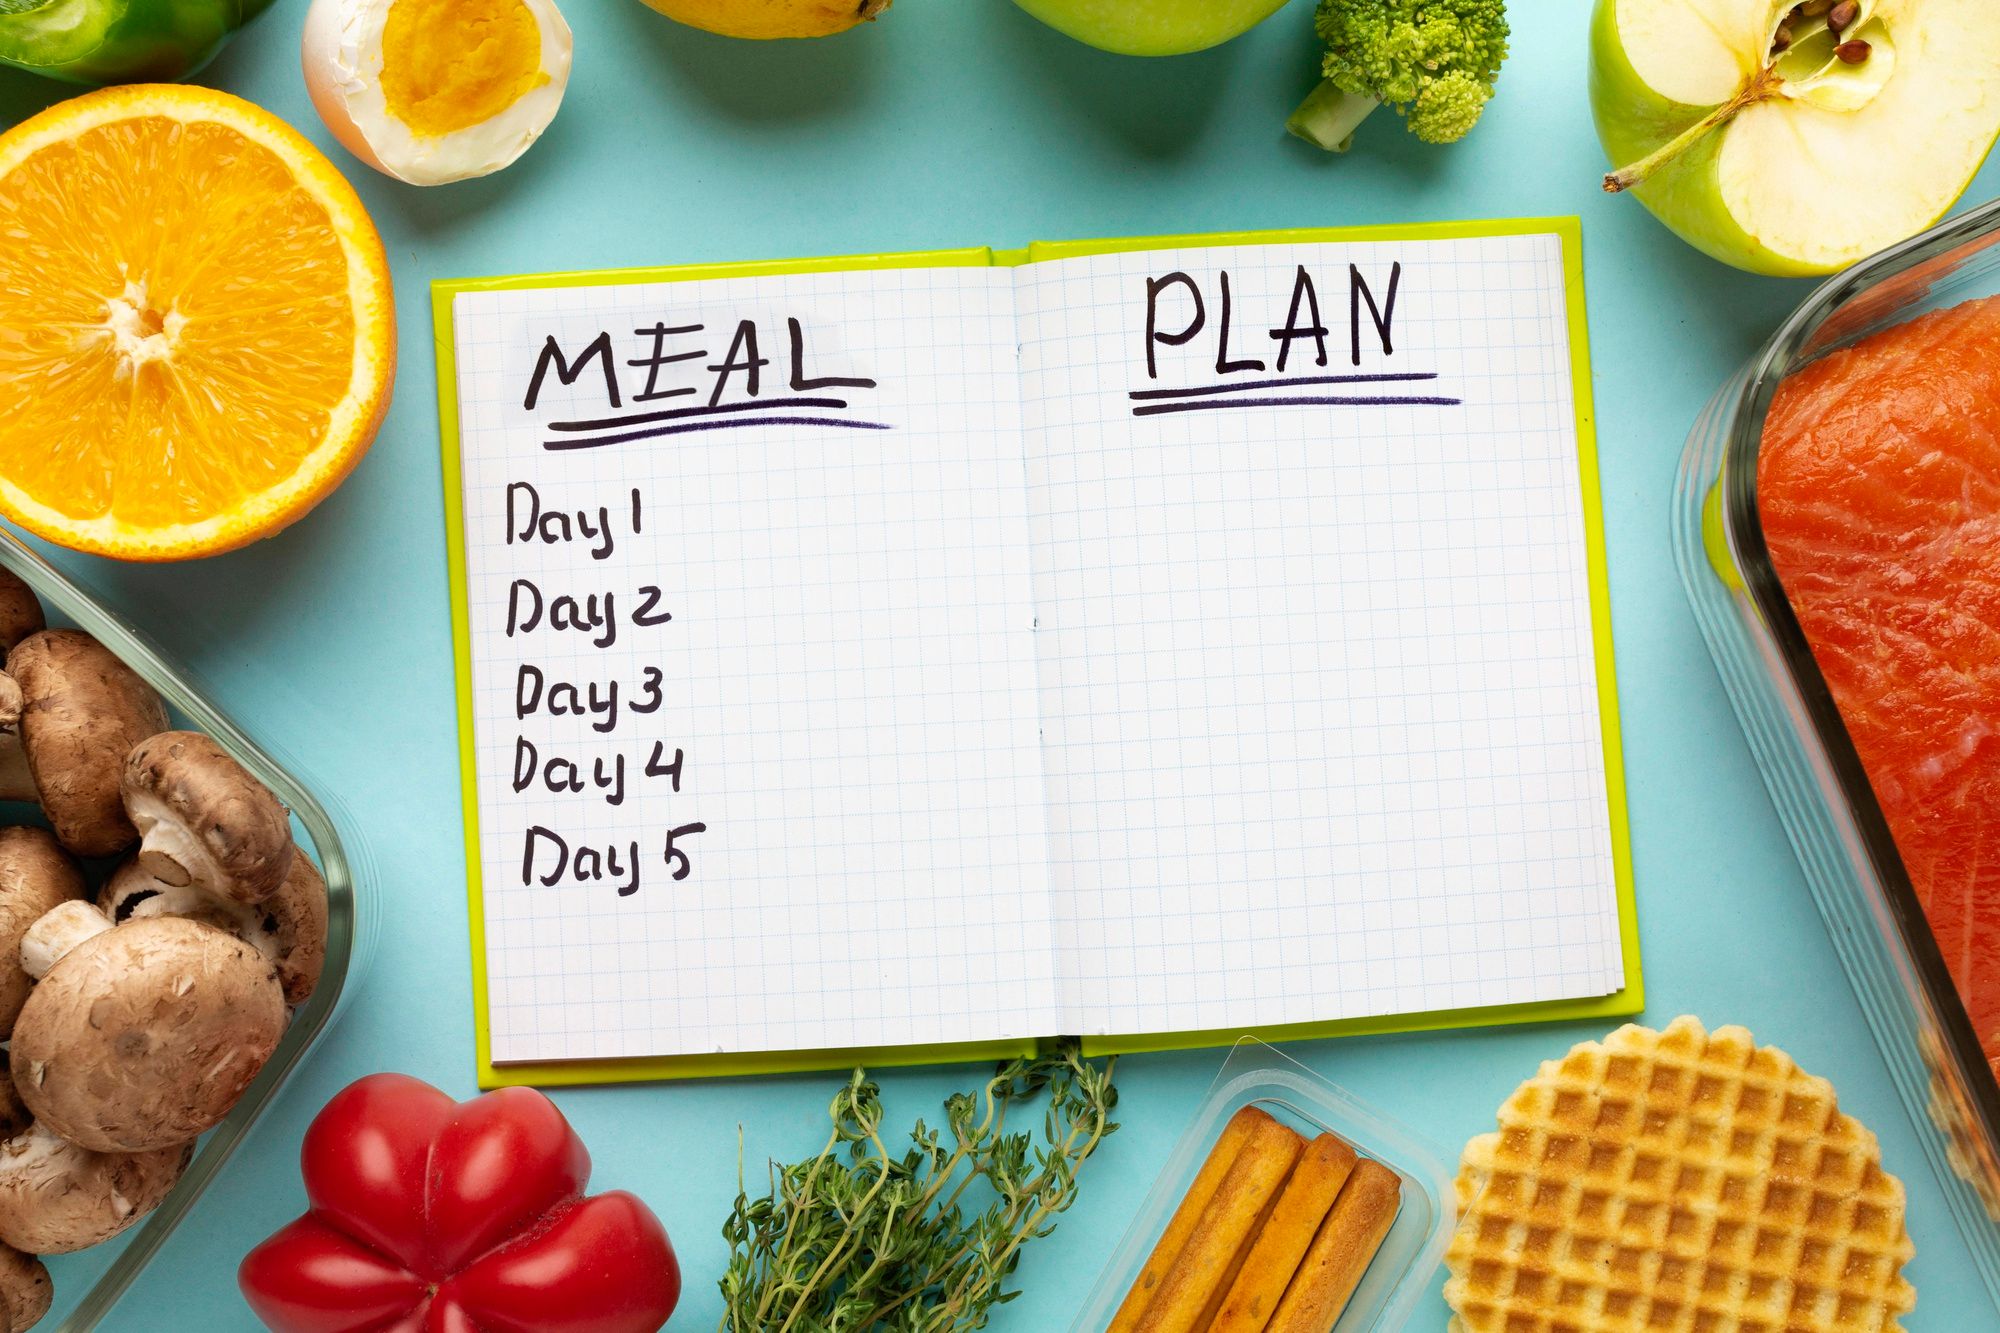 MEAL
PLAN
Day 1
Day 2
Day 3
Day 4
Day 5